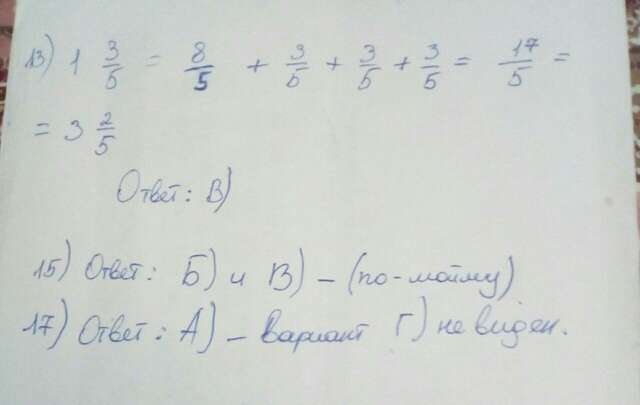 13) 1 3/5 = 8/5 + 3/5 + 3/5 + 3/5 = 17/5 =
= 3 2/5
Ответ: В)
15) Ответ: Б) и В) - (по-мойму)
17) Ответ: А) - вариант Г) не виден.